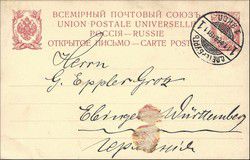 ВСЕМІРНЫЙ ПОЧТОВЫЙ СОЮЗЪ
UNION POSTALE UNIVERSELLE
РОССІЯ—RUSSIE
ОТКРЫТОЕ ПИСЬМО—CARTE POSTALE
Herrn
G. Eppler-Groz
Ebingen Württemberg
Германія